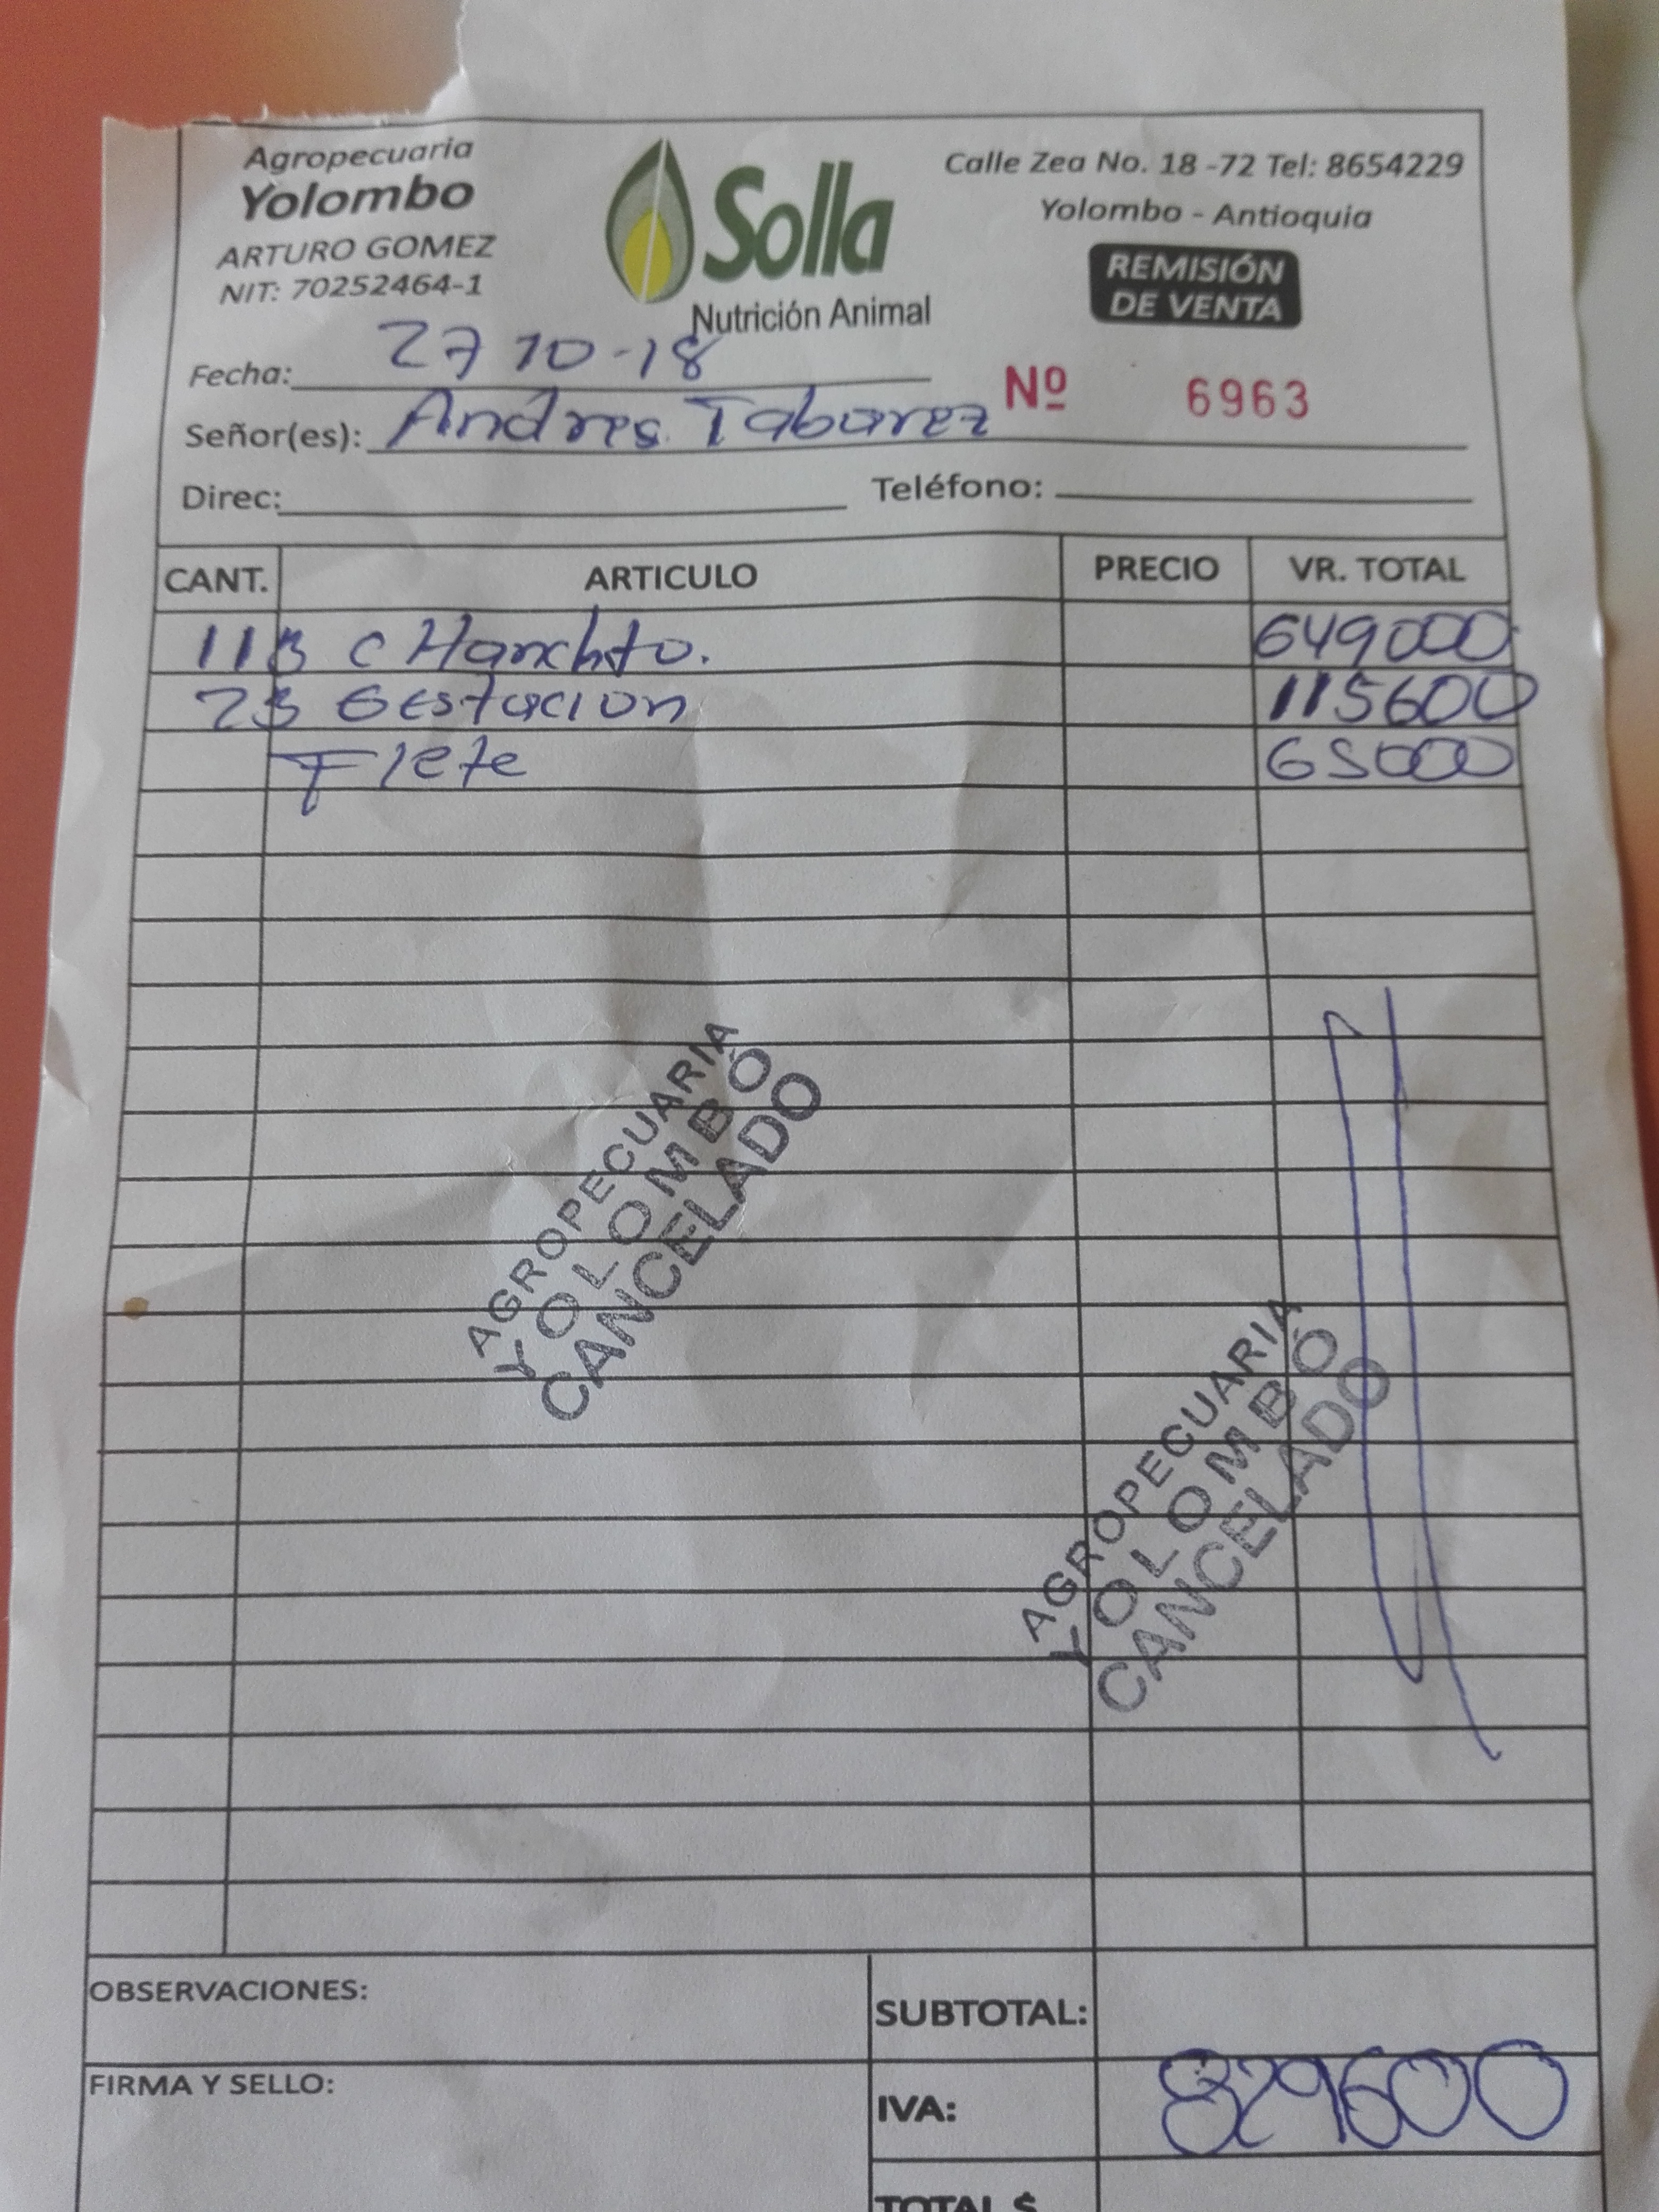 Agropecuaria
Yolombo
ARTURO GOMEZ
NIT: 70252464-1
Solla
Nutrición Animal
Calle Zea No. 18 -72 Tel: 8654229
Yolombo - Antioquia
REMISIÓN
DE VENTA
Fecha: 27 10-18
Nº 6963
Señor(es): Andres Tabarez
Direc: Teléfono:
CANT. ARTICULO PRECIO VR. TOTAL
11B C 649000
2B Gestacion 115600
Flete 65000
AGROPECUARIA
YOLOMBO
CANCELADO
AGROPECUARIA
YOLOMBO
CANCELADO
OBSERVACIONES:
SUBTOTAL:
FIRMA Y SELLO:
IVA: 829600
TOTAL $